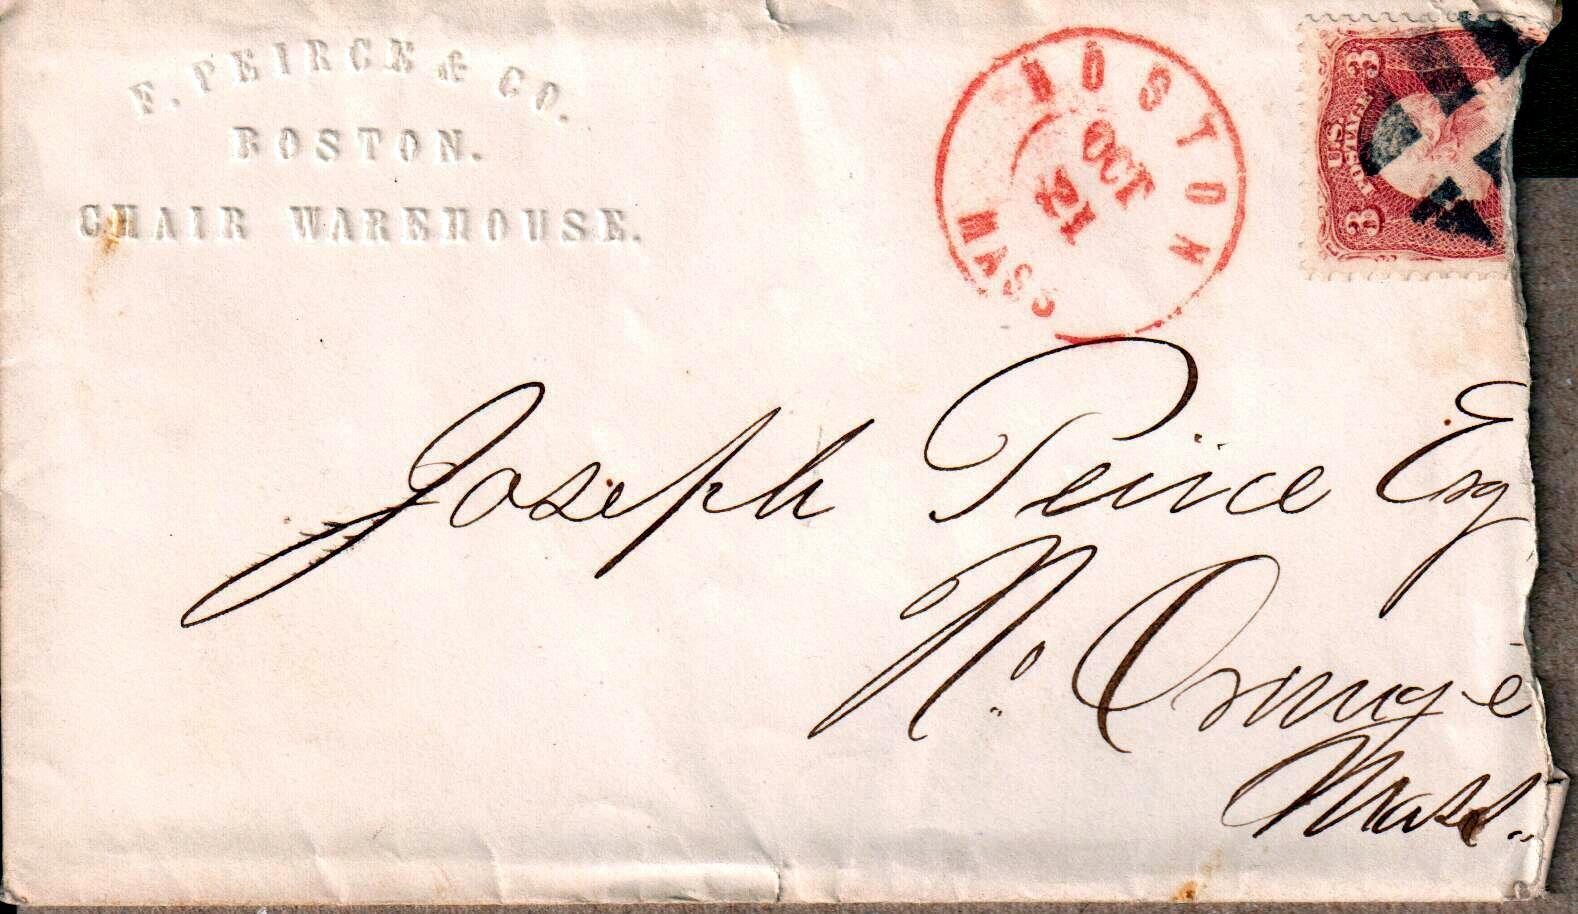 F. PEIRCE & CO.
BOSTON.
CHAIR WAREHOUSE.
BOSTON
MASS
OCT
21
3 3
U.S.
POSTAGE
Joseph Peirce Esq
No. Orange
Mass.